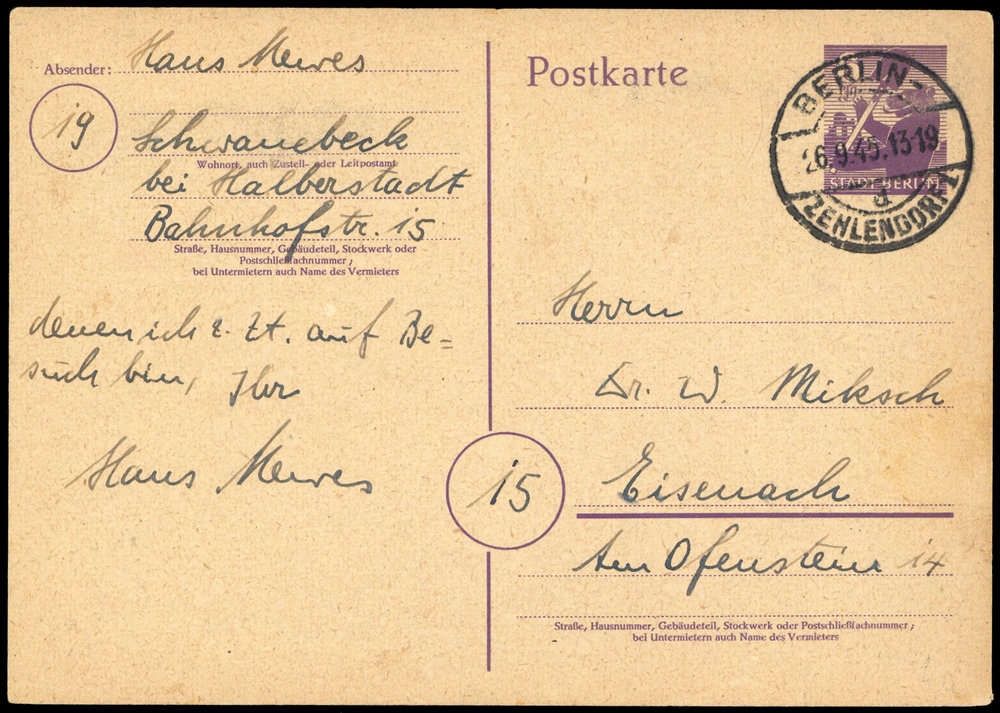 Absender: Hans Mewes
19
Schwanebeck
Wohnort, auch Zustell- oder Leitpostamt
bei Halberstadt
Bahnhofstr. 15
Straße, Hausnummer, Gebäudeteil, Stockwerk oder
Postschließfachnummer;
bei Untermietern auch Name des Vermieters
denen ich z. Zt. auf Be=
such bin, Ihr
Hans Mewes
Postkarte
BERLIN-
26.9.45.13-19
STADT BERLIN
d
ZEHLENDORF 1
Herrn
Dr. W. Miksch
15
Eisenach
Am Ofenstein 14
Straße, Hausnummer, Gebäudeteil, Stockwerk oder Postschließfachnummer;
bei Untermietern auch Name des Vermieters